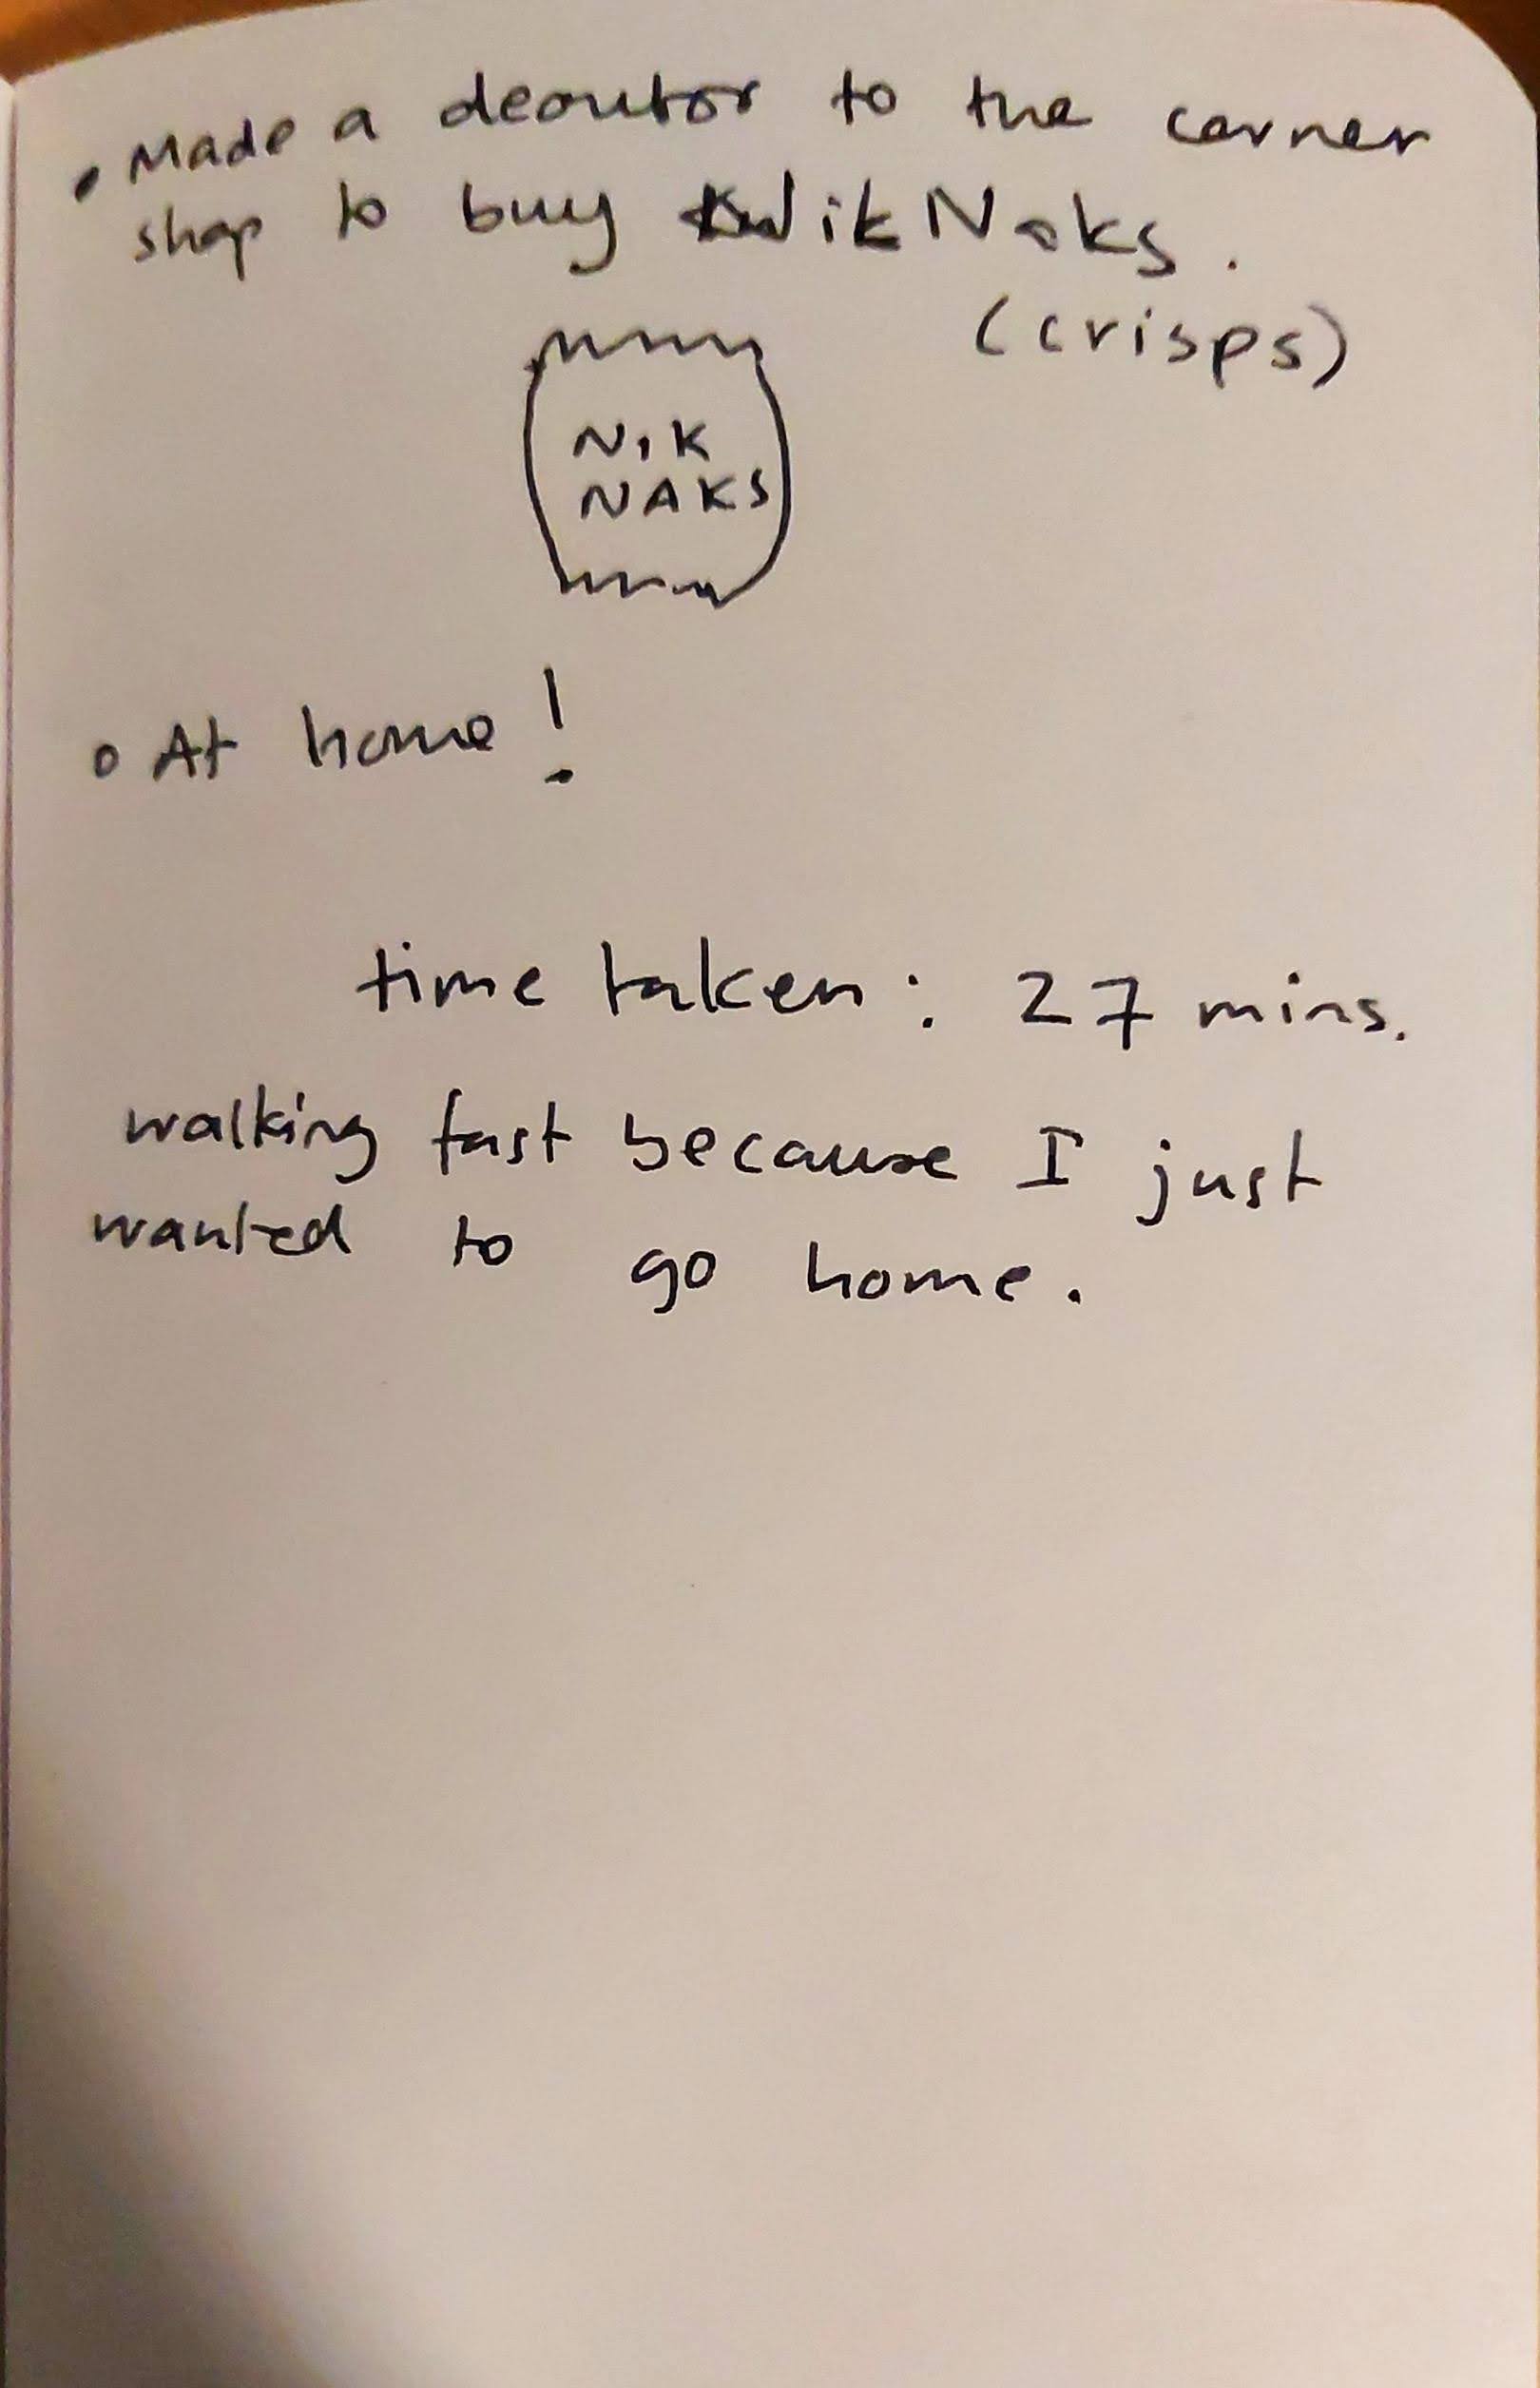 • Made a deoutor to the corner
shop to buy NikNaks.
(crisps)
NIK
NAKS
• At home!
time taken: 27 mins.
walking fast because I just
wanted to go home.